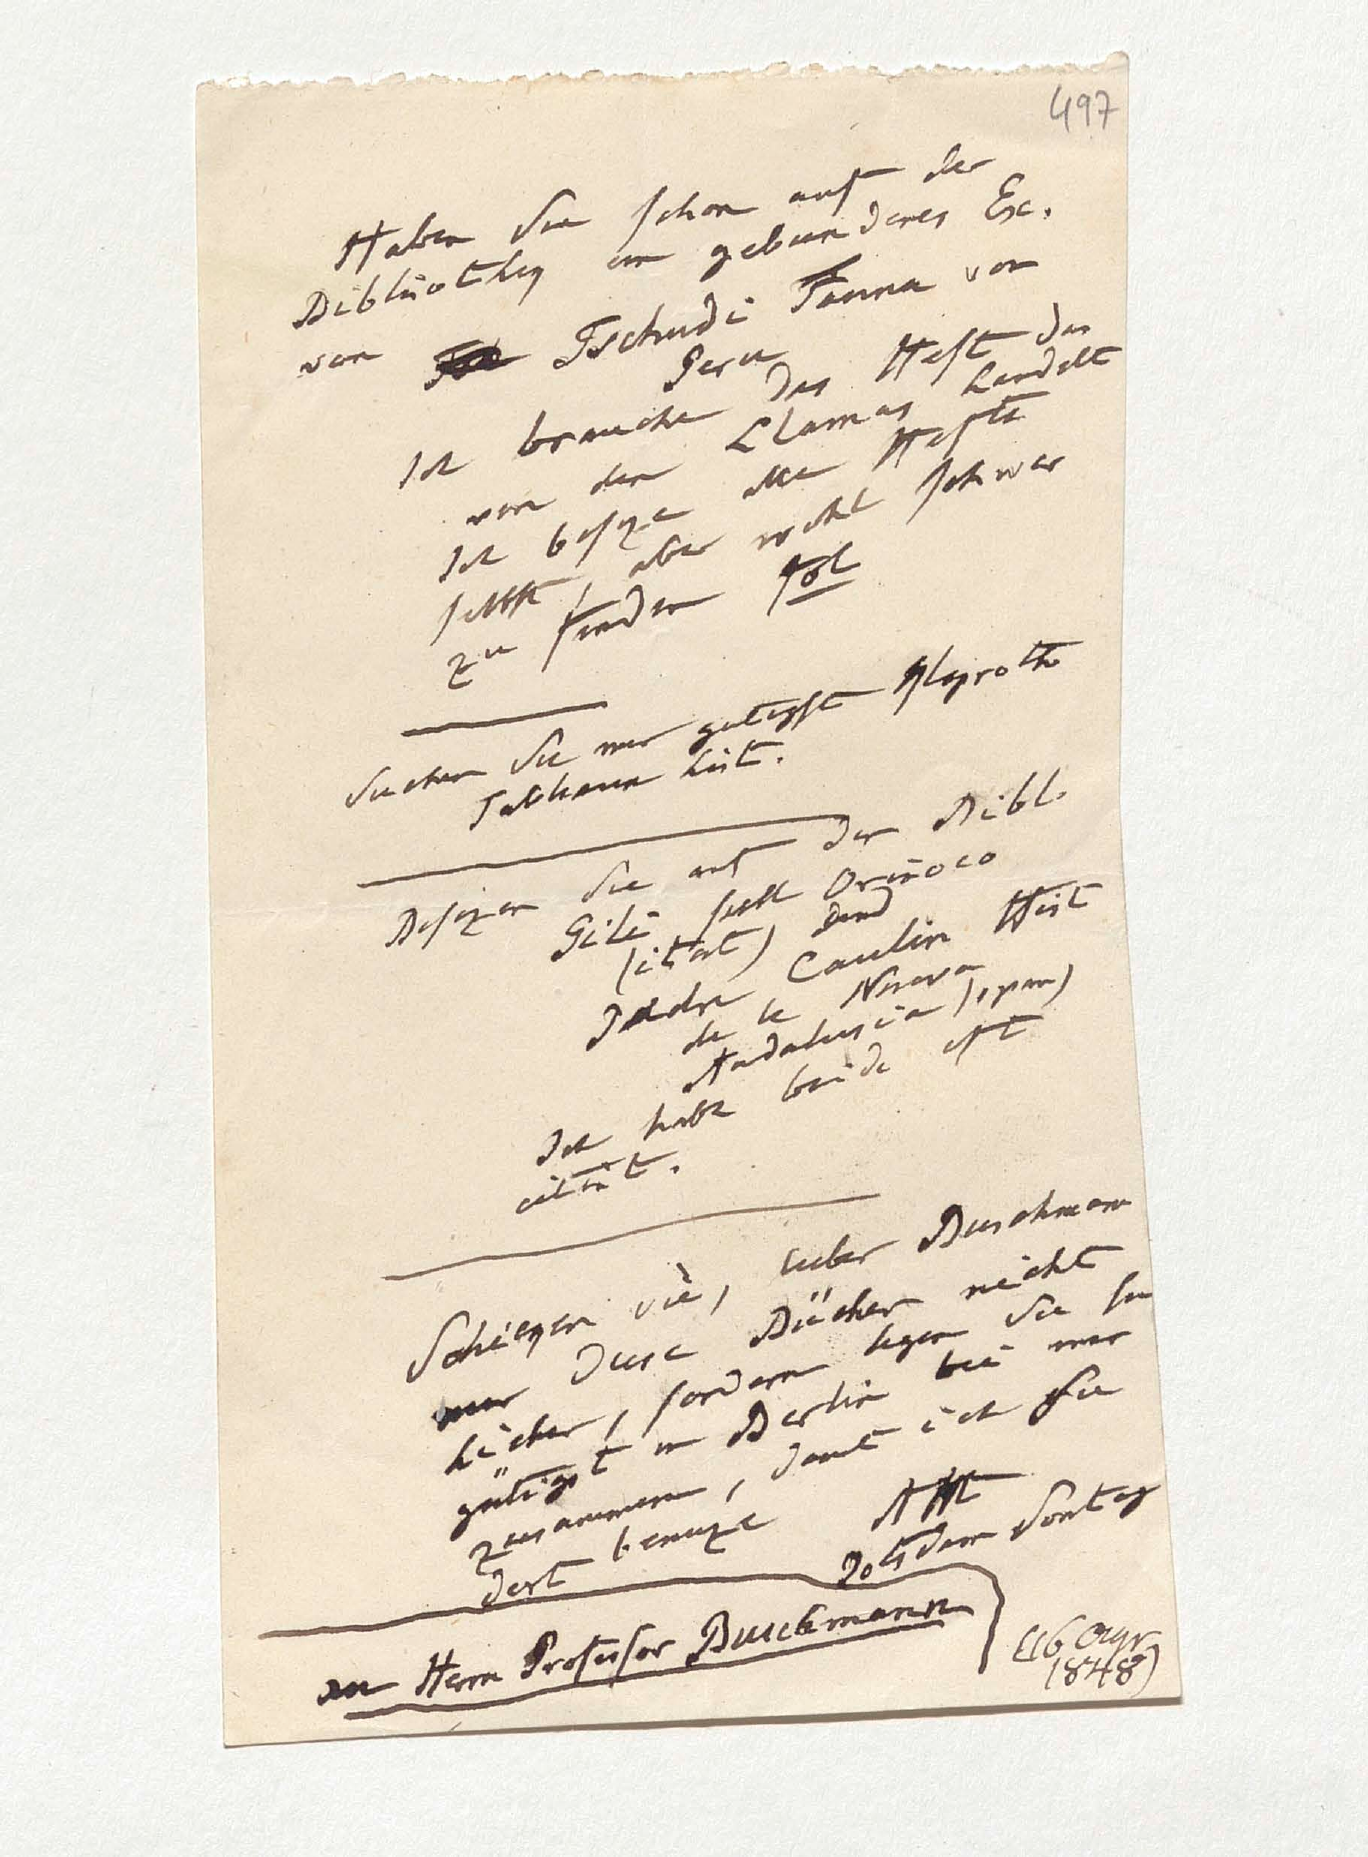 497
Haben Sie schon auf der
Bibliothek ein gebundenes Ex.
von Tschudi Fauna von
Peru
Ich brauche das Heft das
von den Llamas handelt
Ich besize alle Hefte
selbst, aber wohl schwer
zu finden
Suchen Sie mir gütigst Klaproth
Tableaux hist.
Besizen Sie auf der Bibl.
Gili Orinoco
(ital) und
Padre Caulin Hist
de la Nueva
Andalusia
Ich habe beide oft
citirt.
Schikken Sie, lieber Buschmann
mir diese Bücher nicht
hieher, sondern legen Sie sie
gütigst in Berlin bei mir
zusammen, damit ich sie
dort benuze AHt
Potsdam Sontag
an Herrn Professor Buschmann
(16 Apr.
1848)